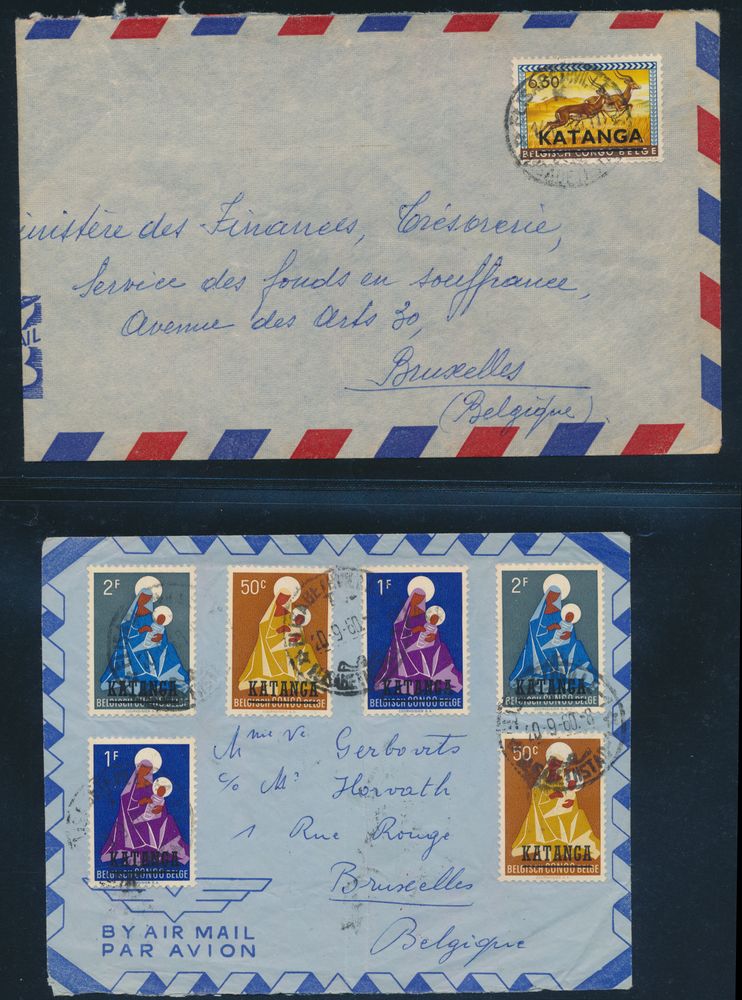 6.50
KATANGA
BELGISCH CONGO BELGE
Ministère des Finances, Trésorerie,
Service des fonds en souffrance,
Avenue des Arts 30,
Bruxelles
(Belgique)
2F
KATANGA
BELGISCH CONGO BELGE
50c
KATANGA
BELGISCH CONGO BELGE
20-9-60
1F
KATANGA
BELGISCH CONGO BELGE
2F
KATANGA
BELGISCH CONGO BELGE
20-9-60-8
1F
KATANGA
BELGISCH CONGO BELGE
50c
KATANGA
BELGISCH CONGO BELGE
Mme Ve Gerbovits
c/o Mr Horvath
1 Rue Rouge
Bruxelles
Belgique
BY AIR MAIL
PAR AVION